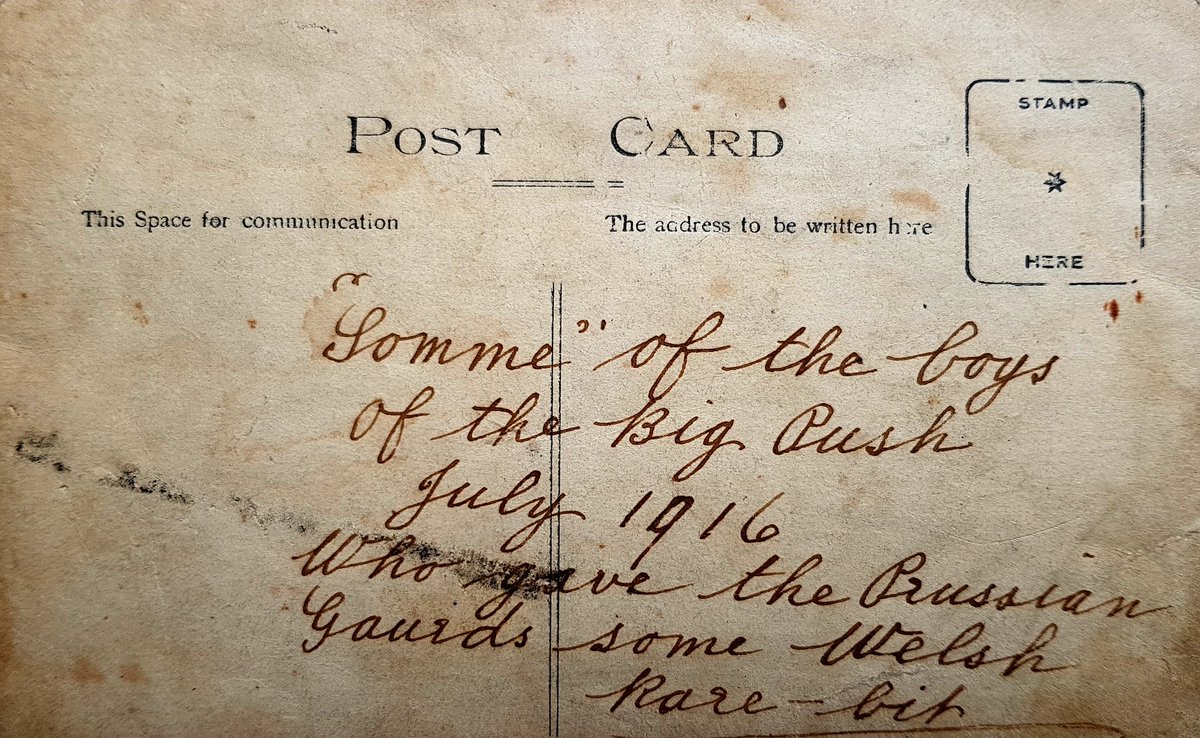 POST CARD
STAMP
HERE
This Space for communication
The address to be written here
"Somme" of the boys
of the Big Push
July 1916
Who gave the Prussian
Gaurds some Welsh
Rare-bit